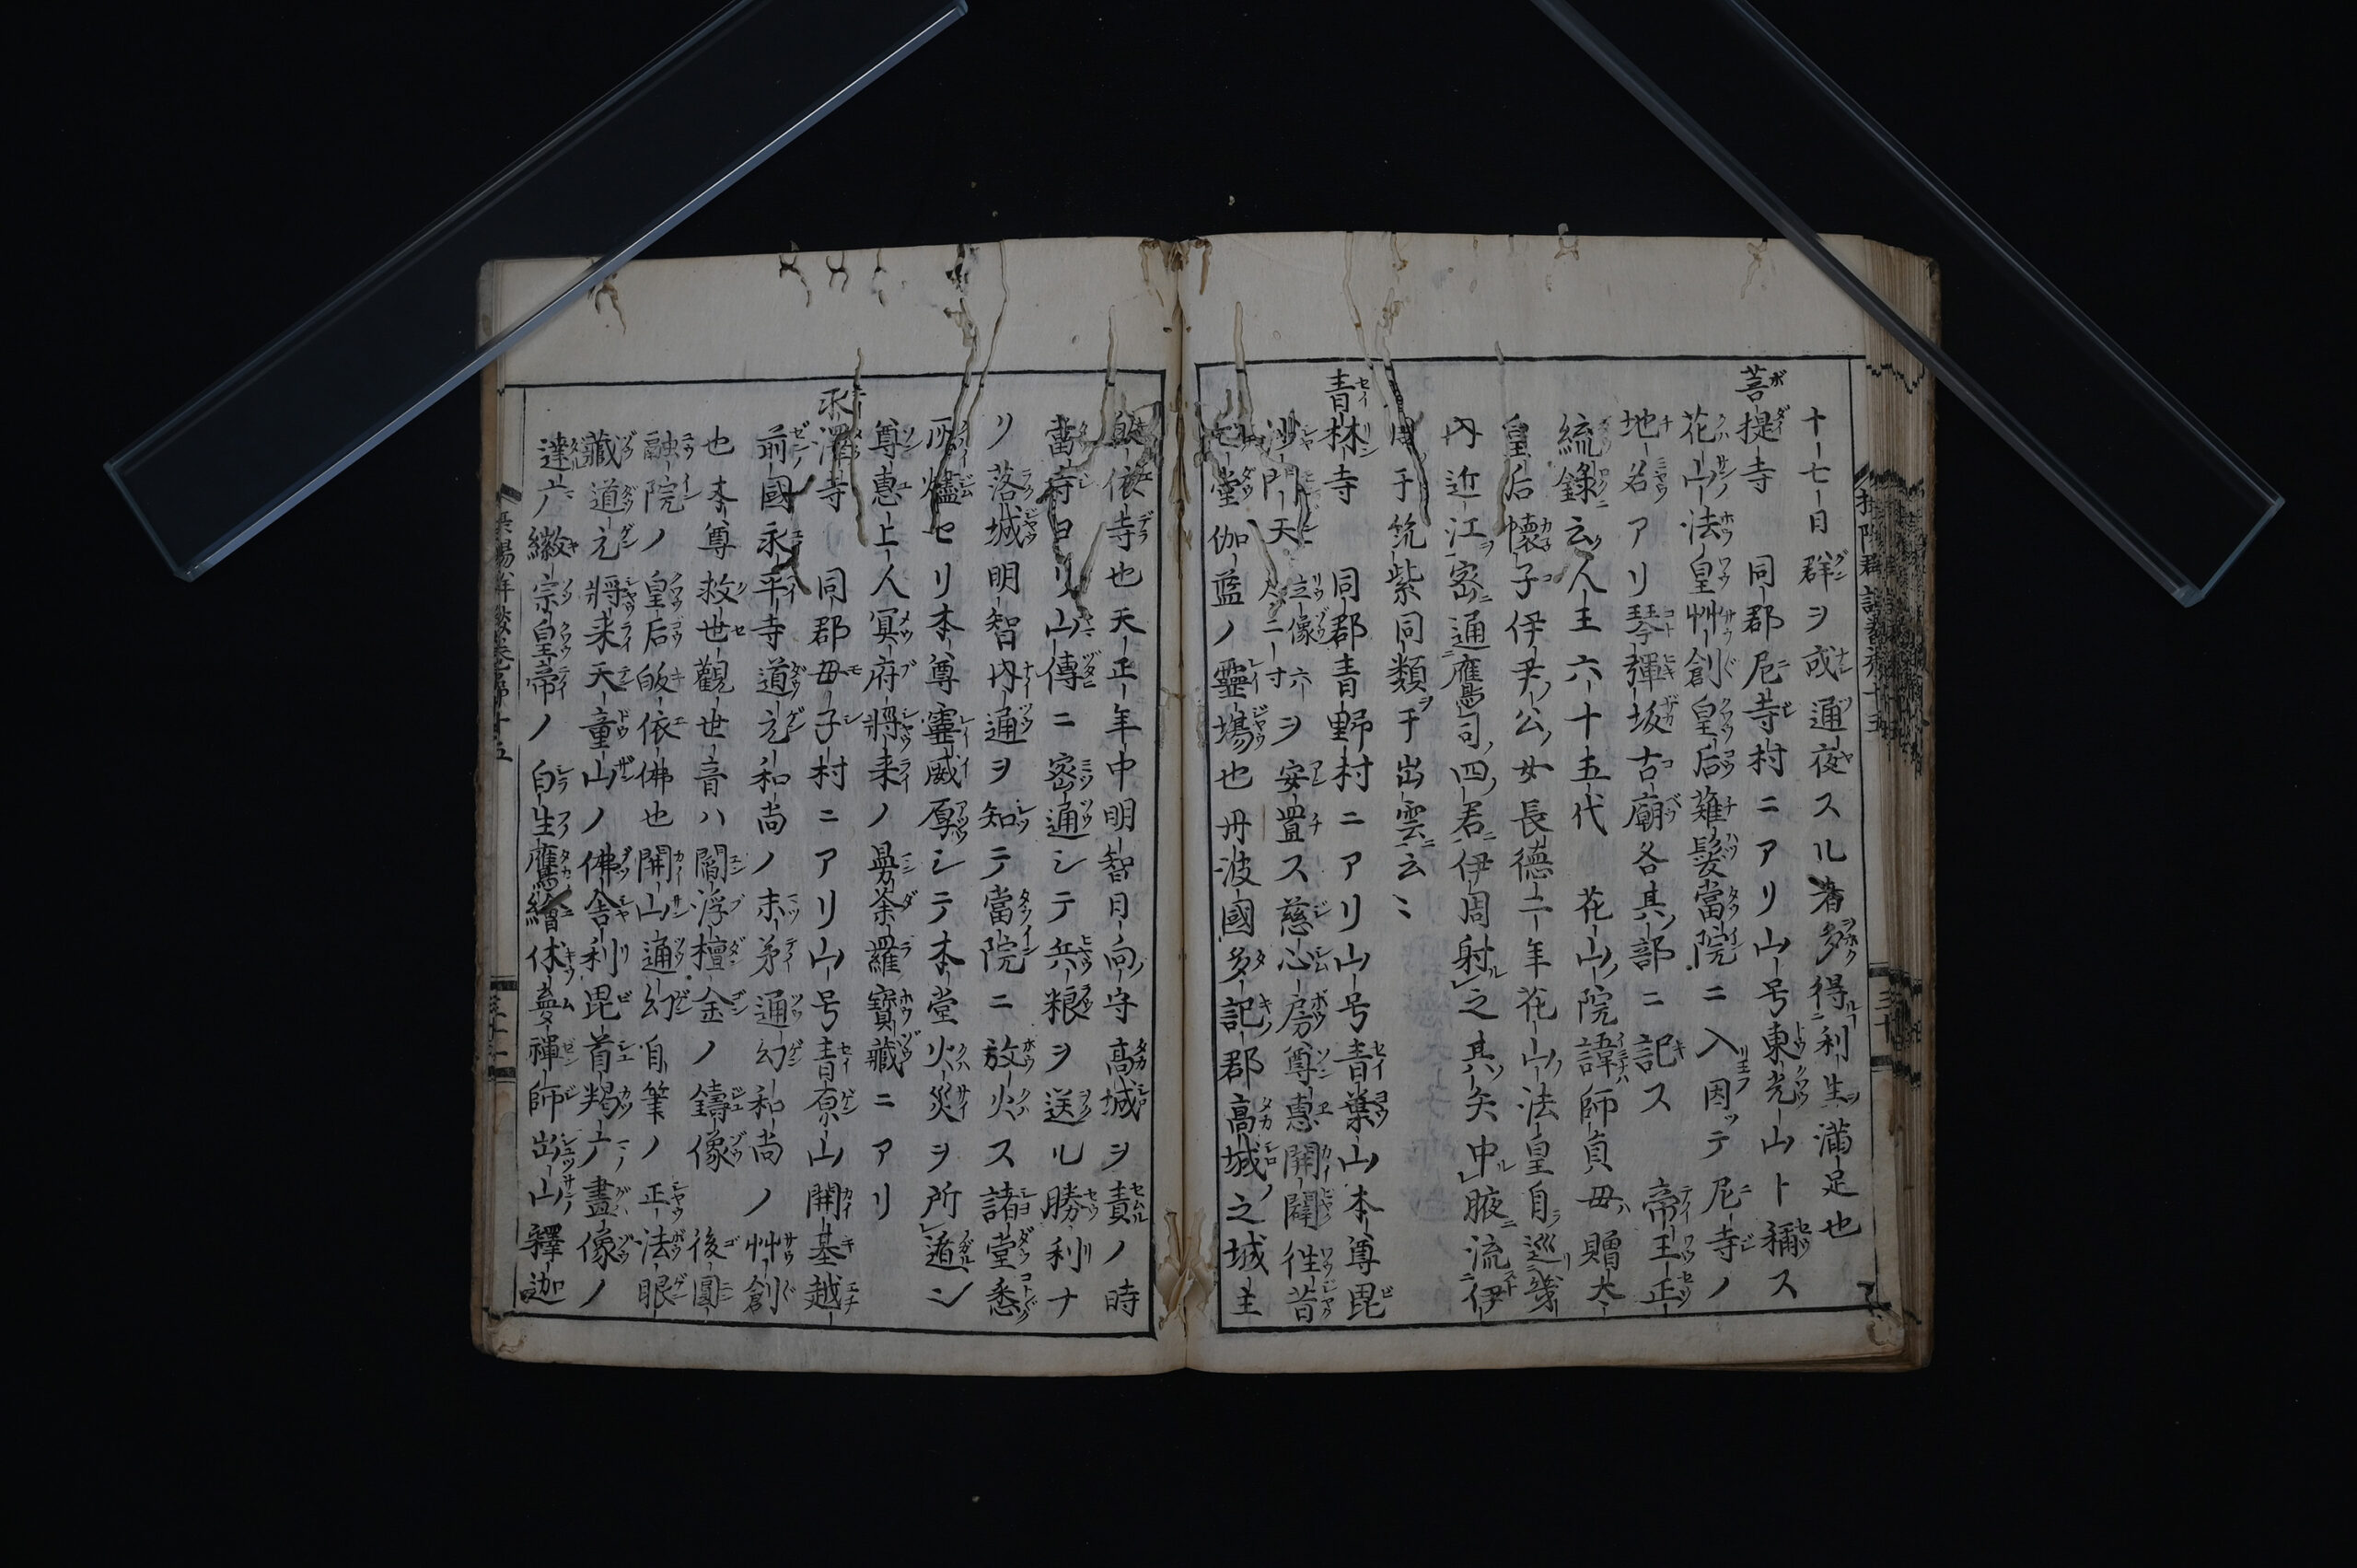 十七日群ヲ或通夜スル者多得利生満足也
菩提寺 同郡尼寺村ニアリ山号東光山ト稱ス
花山法皇艸創皇后薙髪當院ニ入因ッテ尼寺ノ
地名アリ琴彈坂古廟各其部ニ記ス 帝王正
統録云人王六十五代 花山院諱師貞母贈太
皇后懐子伊尹公女長徳二年花山法皇自巡幾
内近江密通鷹司四君伊周射之其矢中腋流伊
周于筑紫同類于出雲云〻
青林寺 同郡青野村ニアリ山号青葉山本尊毘
沙門天立像二寸六ヲ安置ス慈心房尊惠開闢往昔
七堂伽藍ノ靈場也丹波國多記郡高城之城主
皈依寺也天正年中明智日向守高城ヲ責ノ時
當寺ヨリ山傳ニ密通シテ兵粮ヲ送ル勝利ナ
リ落城明智内通ヲ知テ當院ニ放火ス諸堂悉
所燼セリ本尊靈威厚シテ本堂火災ヲ所遁ン
尊惠上人冥府將来ノ曼荼羅寶藏ニアリ
永澤寺 同郡母子村ニアリ山号青原山開基越
前國永平寺道元和尚ノ末弟通幻和尚ノ艸創
也本尊救世觀世音ハ閻浮檀金ノ鑄像 後圓
融院ノ皇后皈依佛也開山通幻自筆ノ正法眼
藏道元將来天童山ノ佛舎利毘首羯ノ畫像ノ
達广徽宗皇帝ノ白生鷹繪休夢禅師出山釋迦